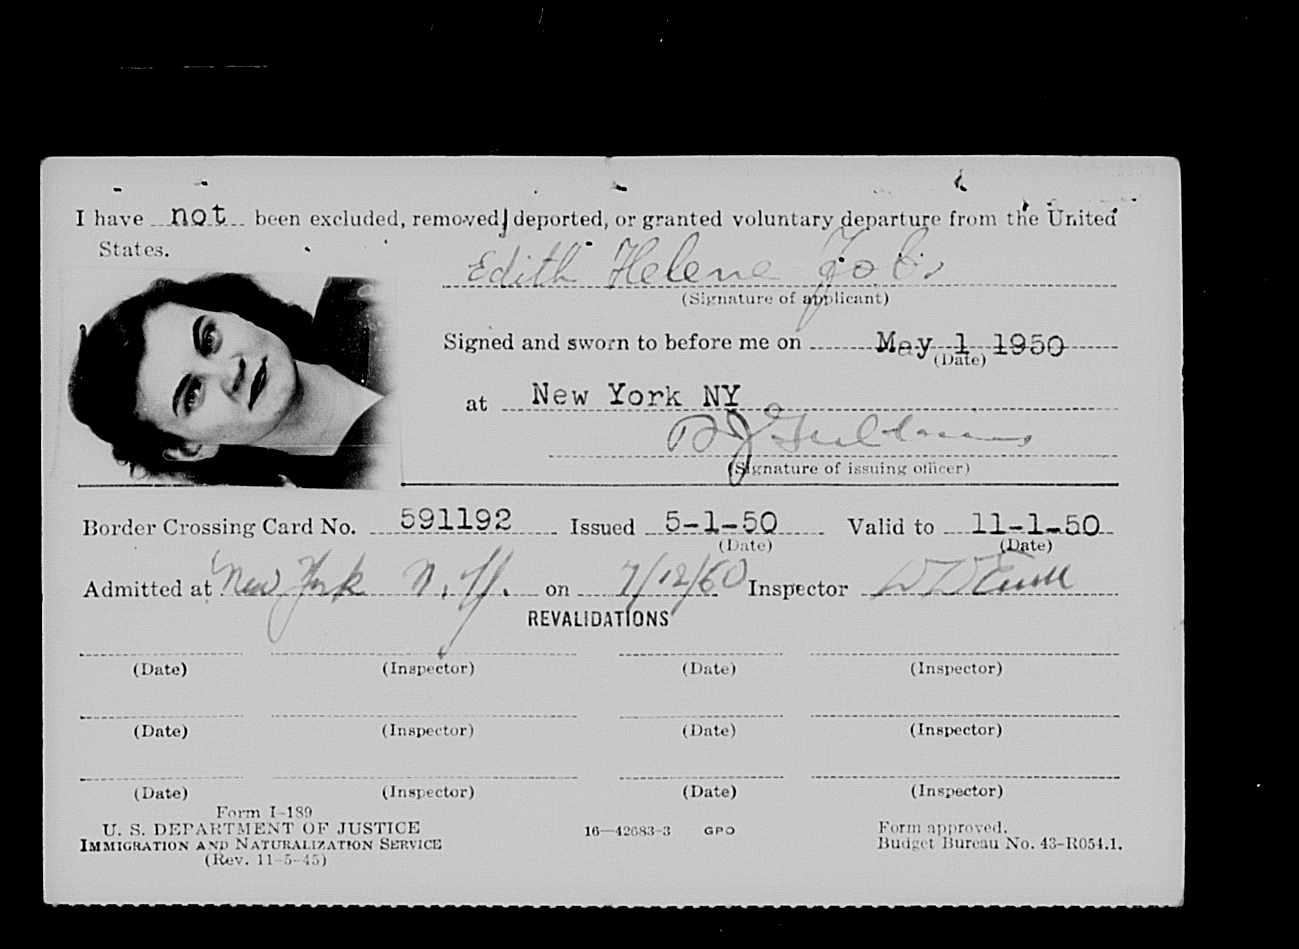 I have not been excluded, removed, deported, or granted voluntary departure from the United
States.
Edith Helene
(Signature of applicant)
Signed and sworn to before me on May 1 1950
(Date)
at New York NY
(Signature of issuing officer)
Border Crossing Card No. 591192 Issued 5-1-50 Valid to 11-1-50
(Date) (Date)
Admitted at New York N.Y. on 7/12/50 Inspector
REVALIDATIONS
(Date) (Inspector) (Date) (Inspector)
(Date) (Inspector) (Date) (Inspector)
(Date) (Inspector) (Date) (Inspector)
Form I-189
U. S. DEPARTMENT OF JUSTICE
IMMIGRATION AND NATURALIZATION SERVICE
(Rev. 11-5-45)
16—42683-3 GPO
Form approved.
Budget Bureau No. 43-R054.1.